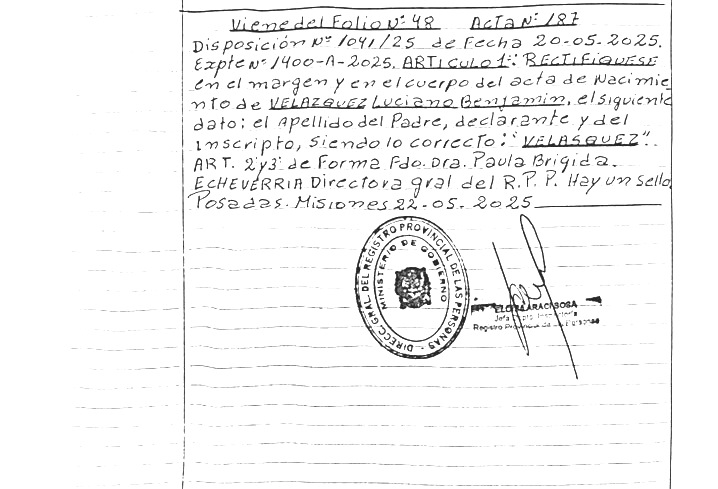 Viene del Folio Nº 48 Acta Nº 187
Disposición Nº 1041/25 de Fecha 20-05-2025.
Expte Nº 1400-A-2025. ARTICULO 1º: RECTIFIQUESE
en el margen y en el cuerpo del acta de Nacimie
nto de VELAZQUEZ Luciano Benjamin, el siguiente
dato: el Apellido del Padre, declarante y del
inscripto, siendo lo correcto: "VELASQUEZ".
ART. 2 y 3º de Forma Fdo. Dra. Paula Brigida.
ECHEVERRIA Directora gral del R.P.P. Hay un sello.
Posadas. Misiones 22-05-2025
DIRECC. GRAL DEL REGISTRO PROVINCIAL DE LAS PERSONAS
MINISTERIO DE GOBIERNO
ARACI SOSA
Jefa
Registro Provincial de las Personas